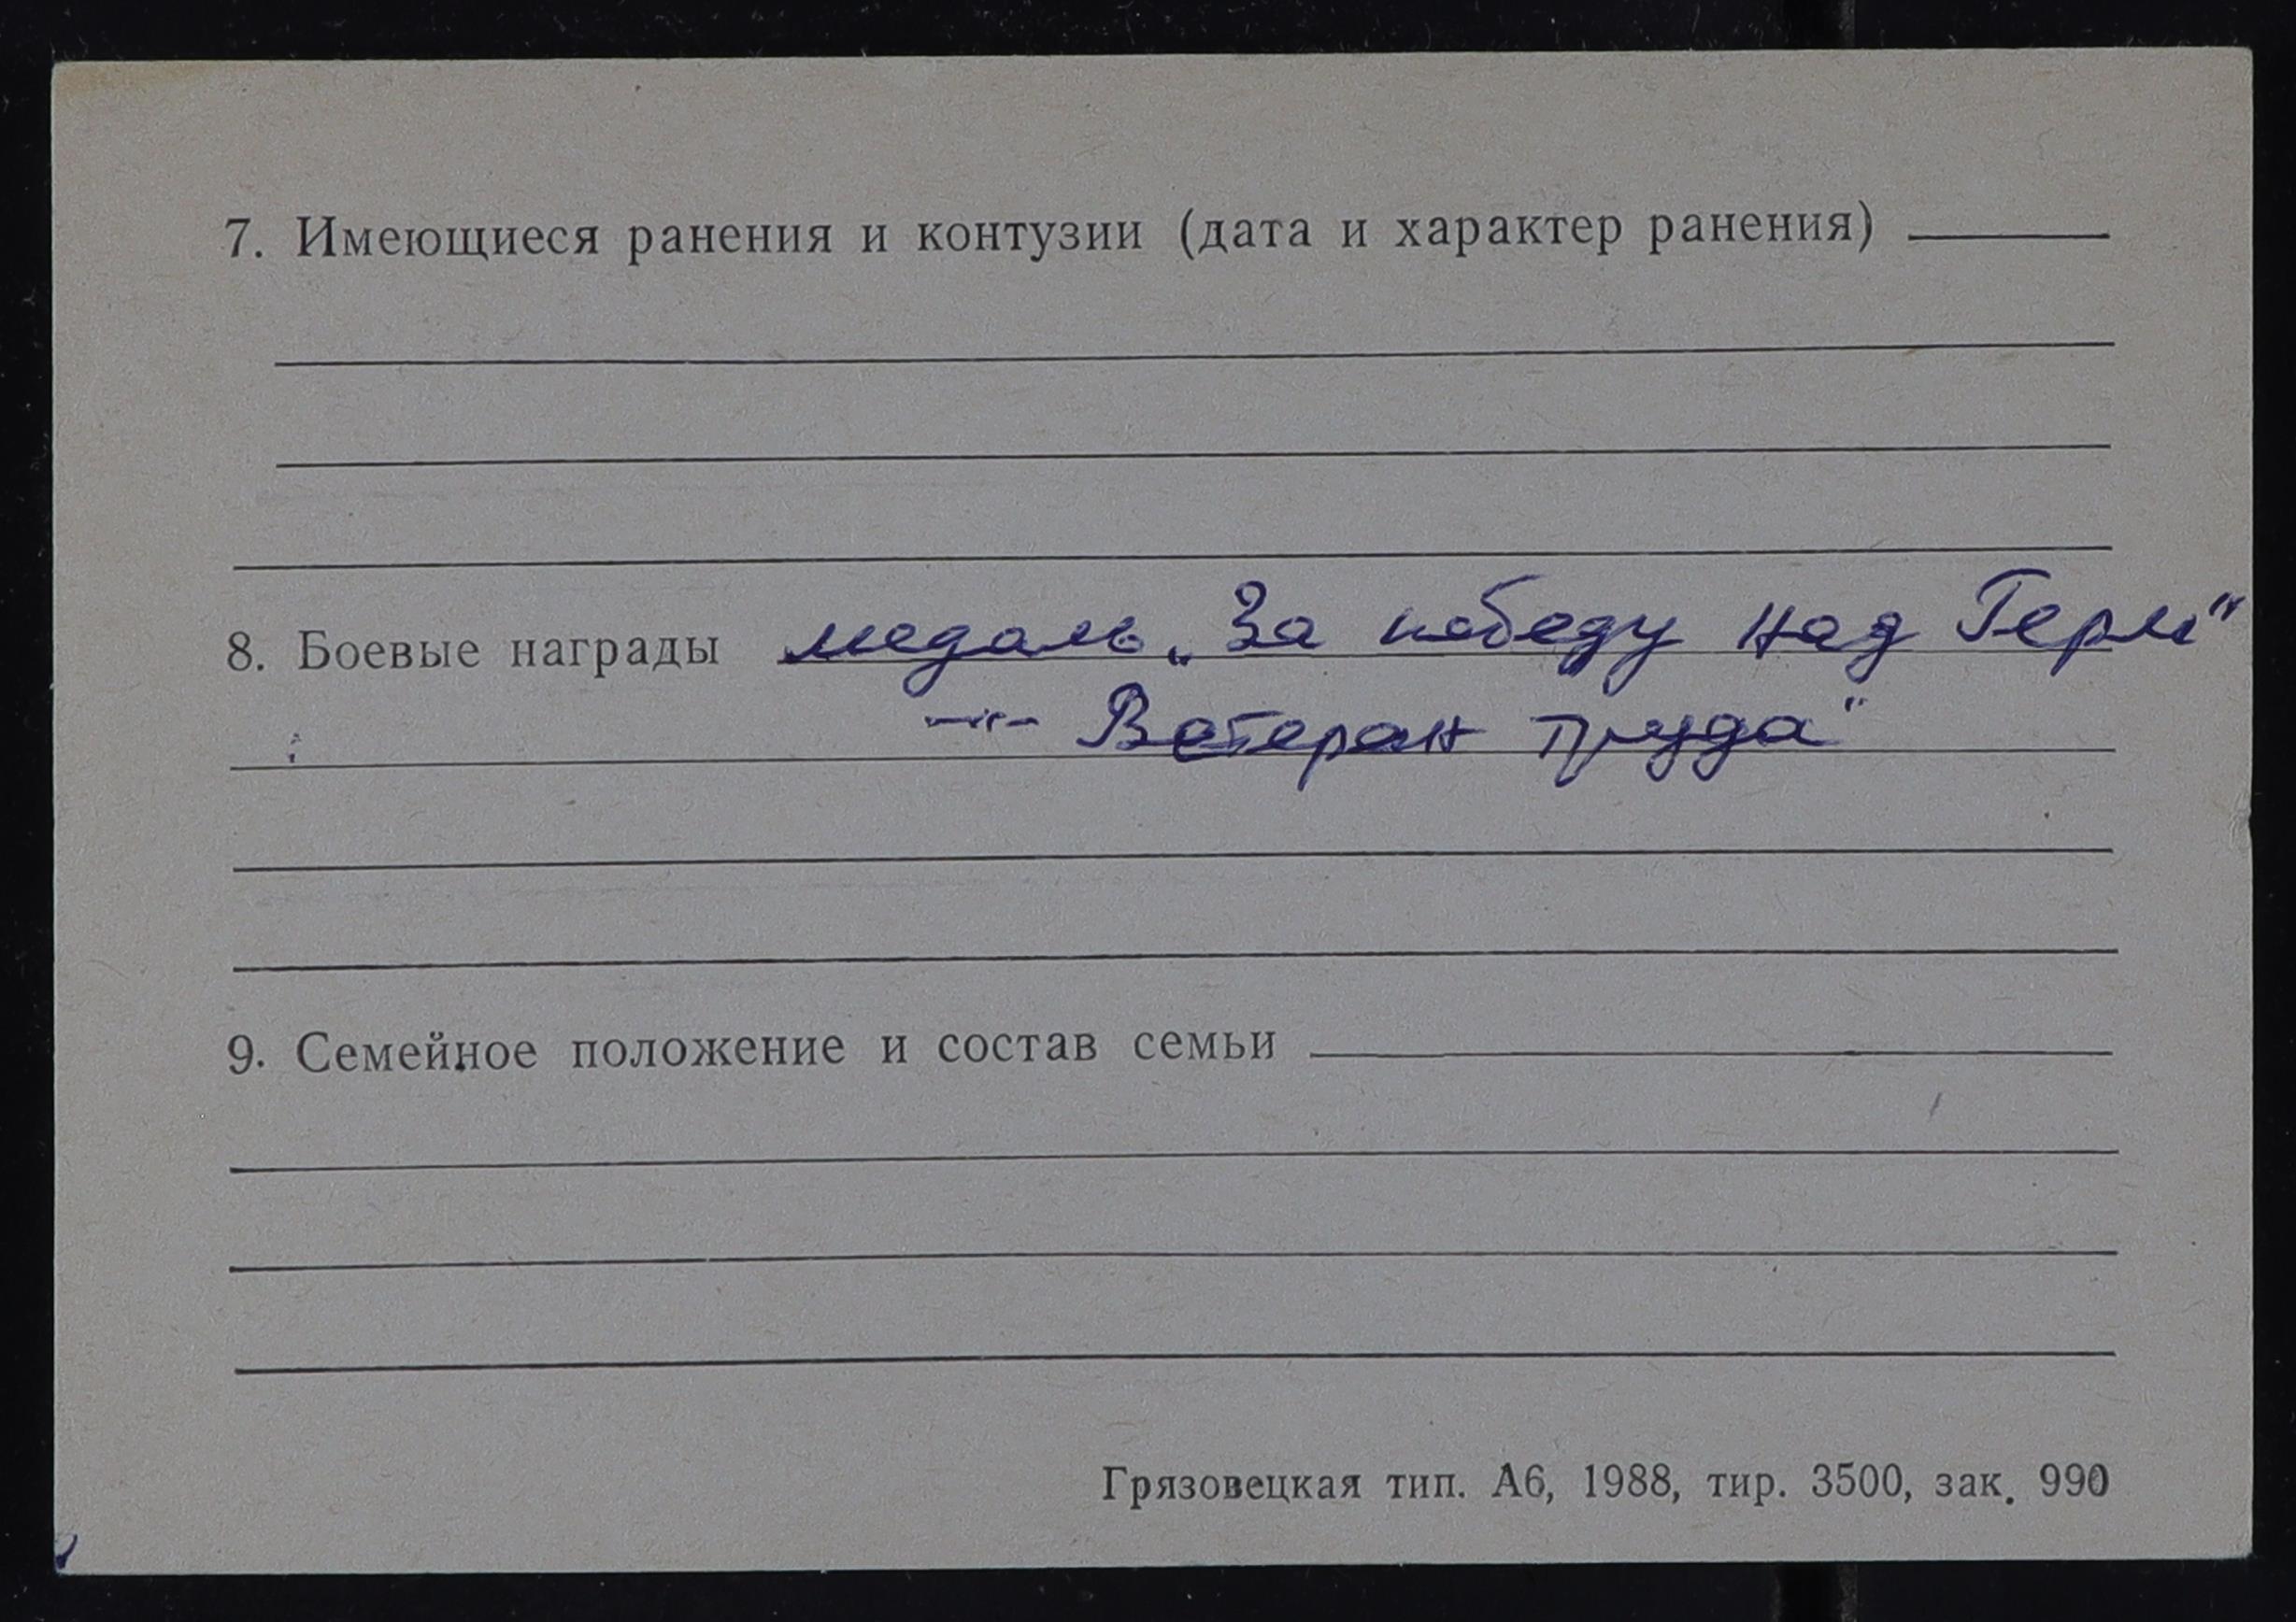 7. Имеющиеся ранения и контузии (дата и характер ранения)
8. Боевые награды медаль „За победу над Герм“
—"— Ветеран труда“
9. Семейное положение и состав семьи
Грязовецкая тип. А6, 1988, тир. 3500, зак. 990